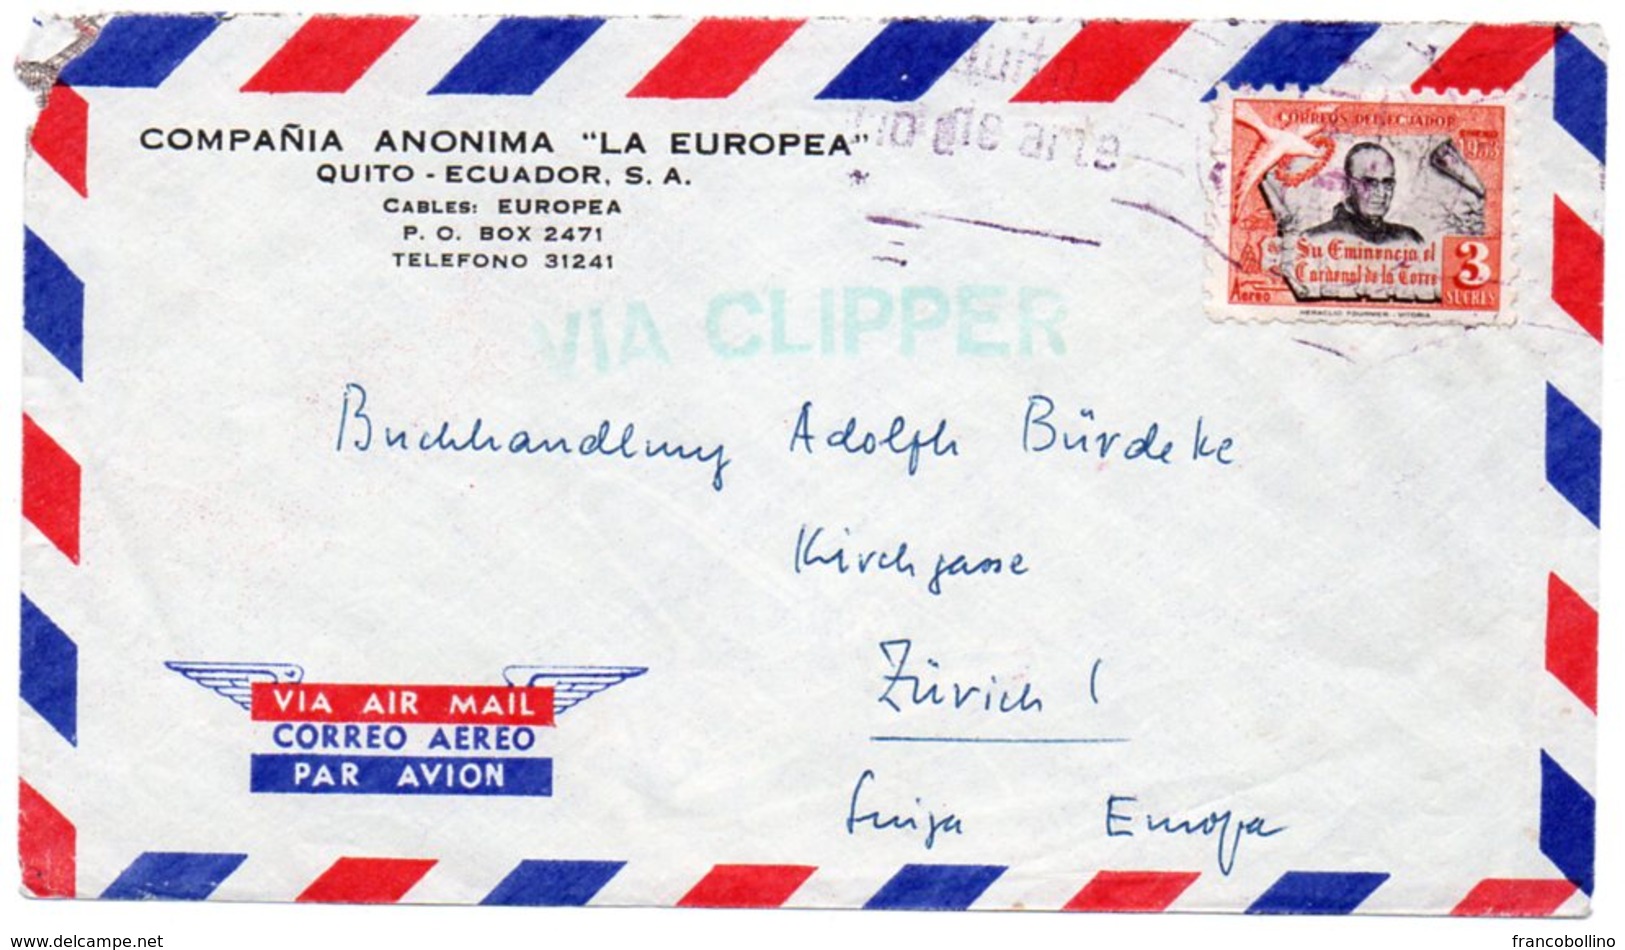 COMPAÑIA ANONIMA "LA EUROPEA"
QUITO - ECUADOR, S. A.
CABLES: EUROPEA
P. O. BOX 2471
TELEFONO 31241
de arte
CORREOS DEL ECUADOR
Su Eminencia el
Cardenal de la Torre
3
SUCRES
Aereo
HERACLIO FOURNIER - VITORIA
VIA CLIPPER
Buchhandlung Adolph Bürdeke
Kirchgasse
Zürich 1
Suiza Europa
VIA AIR MAIL
CORREO AEREO
PAR AVION
www.delcampe.net
francobollino